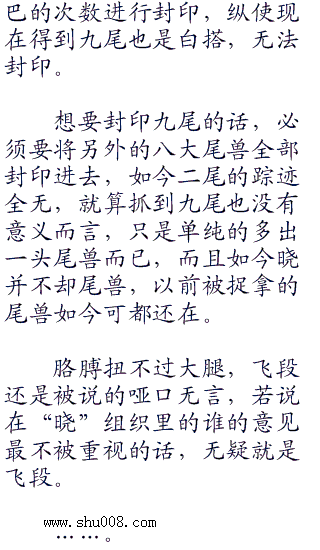 巴的次数进行封印，纵使现
在得到九尾也是白搭，无法
封印。
想要封印九尾的话，必
须要将另外的八大尾兽全部
封印进去，如今二尾的踪迹
全无，就算抓到九尾也没有
意义而言，只是单纯的多出
一头尾兽而已，而且如今晓
并不却尾兽，以前被捉拿的
尾兽如今可都还在。
胳膊扭不过大腿，飞段
还是被说的哑口无言，若说
在“晓”组织里的谁的意见
最不被重视的话，无疑就是
飞段。
www.shu008.com
……。